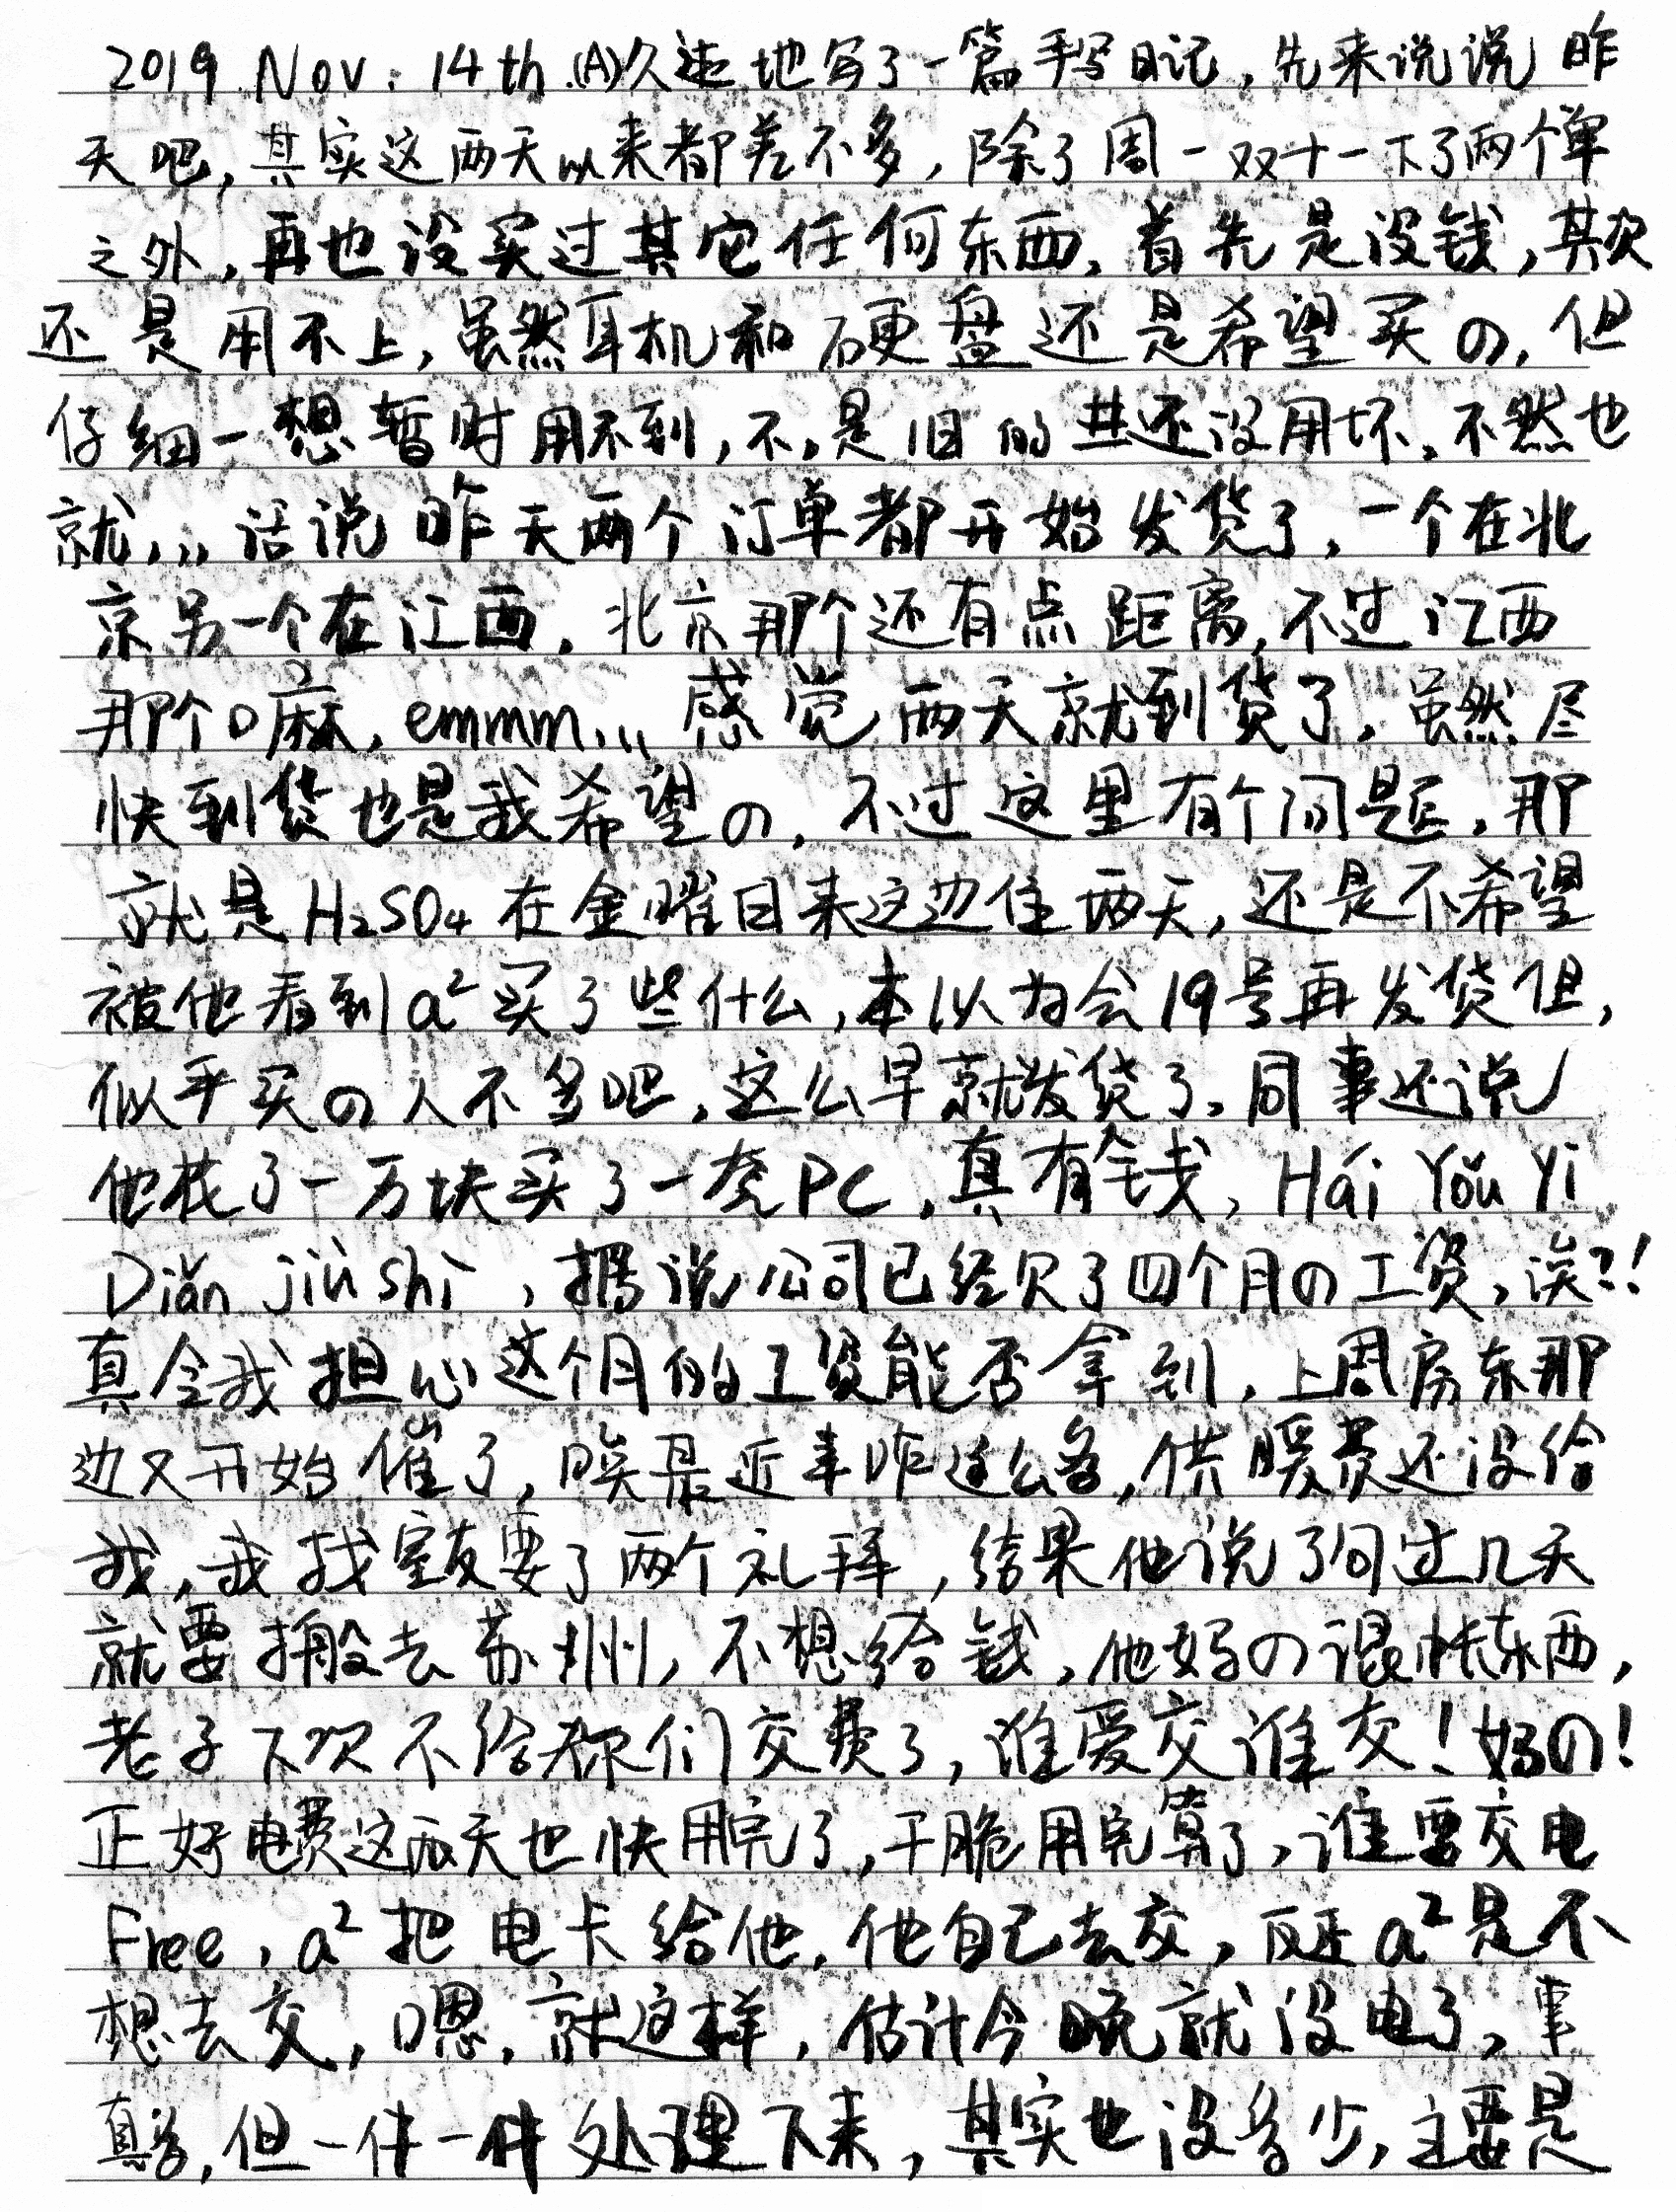 2019 Nov. 14th.(A)久违地写了一篇手写日记,先来说说昨
天吧,其实这两天以来都差不多,除了周一双十一下了两个单
之外,再也没买过其它任何东西,首先是没钱,其次
还是用不上,虽然耳机和硬盘还是希望买の,但
仔细一想暂时用不到,不,是旧的并还没用坏,不然也
就,,,话说昨天两个订单都开始发货了,一个在北
京另一个在江西,北京那个还有点距离,不过江西
那个嘛,emmm,,,感觉两天就到货了,虽然尽
快到货也是我希望の,不过这里有个问题,那
就是H₂SO₄在金曜日来这边住两天,还是不希望
被他看到a²买了些什么,本以为会19号再发货但,
似乎买の人不多吧,这么早就发货了,同事还说
他花了一万块买了一套PC,真有钱,Hái Yǒu Yì
Diǎn jiù shì,据说公司已经欠了四个月の工资,诶?!
真令我担心这个月的工资能否拿到,上周房东那
边又开始催了,唉最近事咋这么多,供暖费还没给
我,我找室友要了两个礼拜,结果他说了句过几天
就要搬去苏州,不想给钱,他妈の混帐东西,
老子下次不给你们交费了,谁爱交谁交!妈の!
正好电费这两天也快用完了,干脆用完算了,谁要交电
Free,a²把电卡给他,他自己去交,反正a²是不
想去交,嗯,就这样,估计今晚就没电了,事
真多,但一件一件处理下来,其实也没多少,主要是